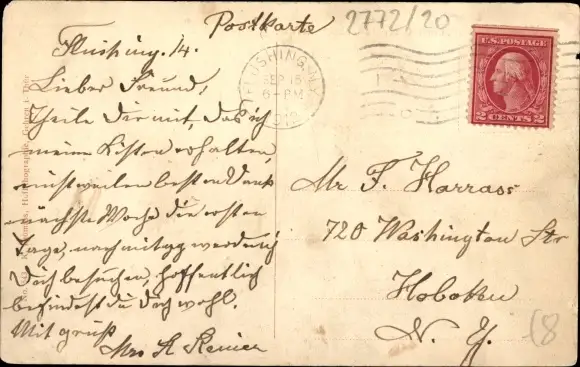 Postkarte
2772/20
Flushing. 14.
Lieber Freund,
Theile Dir mit, das ich
meine Kisten erhalten,
besten Dank
nächste Woche die ersten
Tage, nachmittag werde ich
Dich besuchen, hoffentlich
befindest du Dich wohl.
Mit gruß
Mrs A
FLUSHING, N.Y.
SEP 15
6-PM
U.S. POSTAGE
2 CENTS 2
Mr F. Harrass
720 Washington Str
Hoboken
N. Y.
(8